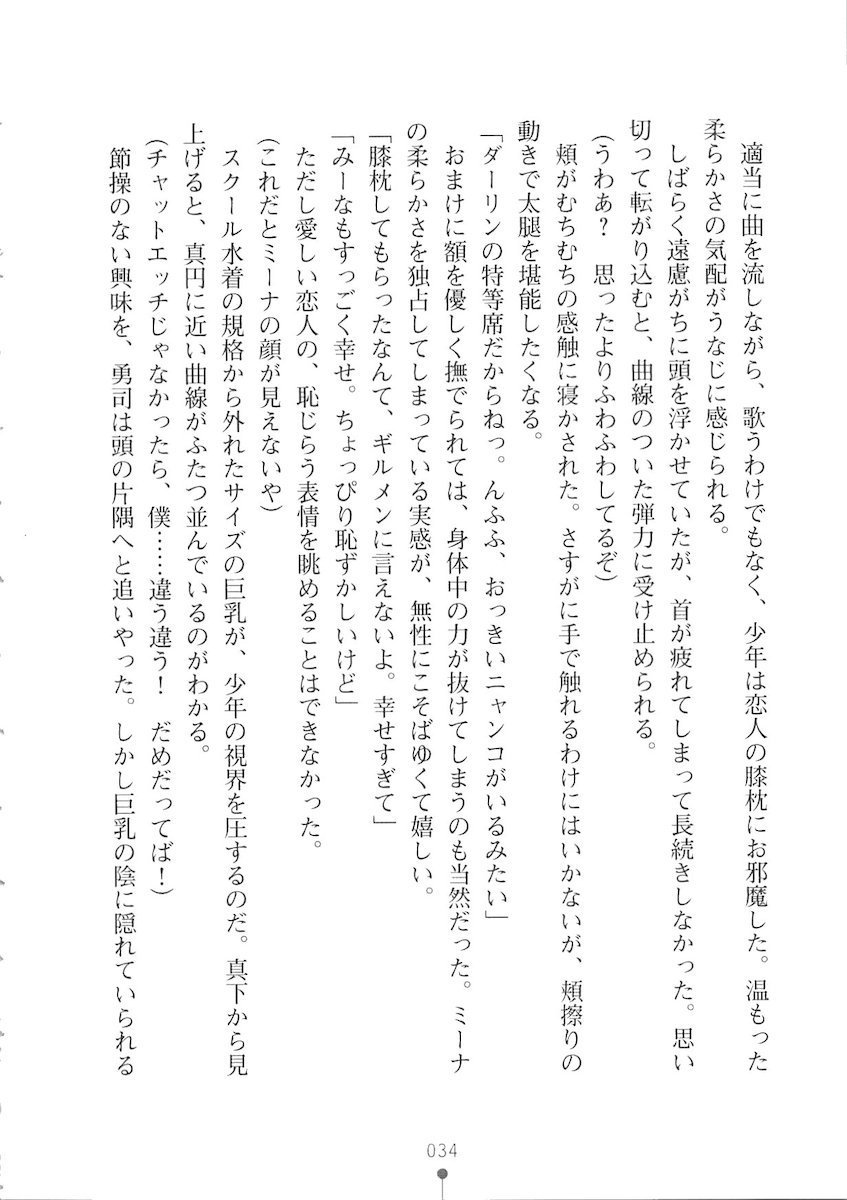 適当に曲を流しながら、歌うわけでもなく、少年は恋人の膝枕にお邪魔した。温もった
柔らかさの気配がうなじに感じられる。
しばらく遠慮がちに頭を浮かせていたが、首が疲れてしまって長続きしなかった。思い
切って転がり込むと、曲線のついた弾力に受け止められる。
(うわぁ?　思ったよりふわふわしてるぞ)
頬がむちむちの感触に寝かされた。さすがに手で触れるわけにはいかないが、頬擦りの
動きで太腿を堪能したくなる。
「ダーリンの特等席だからねっ。んふふ、おっきいニャンコがいるみたい」
おまけに額を優しく撫でられては、身体中の力が抜けてしまうのも当然だった。ミーナ
の柔らかさを独占してしまっている実感が、無性にこそばゆくて嬉しい。
「膝枕してもらったなんて、ギルメンに言えないよ。幸せすぎて」
「みーなもすっごく幸せ。ちょっぴり恥ずかしいけど」
ただし愛しい恋人の、恥じらう表情を眺めることはできなかった。
(これだとミーナの顔が見えないや)
スクール水着の規格から外れたサイズの巨乳が、少年の視界を圧するのだ。真下から見
上げると、真円に近い曲線がふたつ並んでいるのがわかる。
(チャットエッチじゃなかったら、僕……違う違う!　だめだってば!)
節操のない興味を、勇司は頭の片隅へと追いやった。しかし巨乳の陰に隠れていられる
034